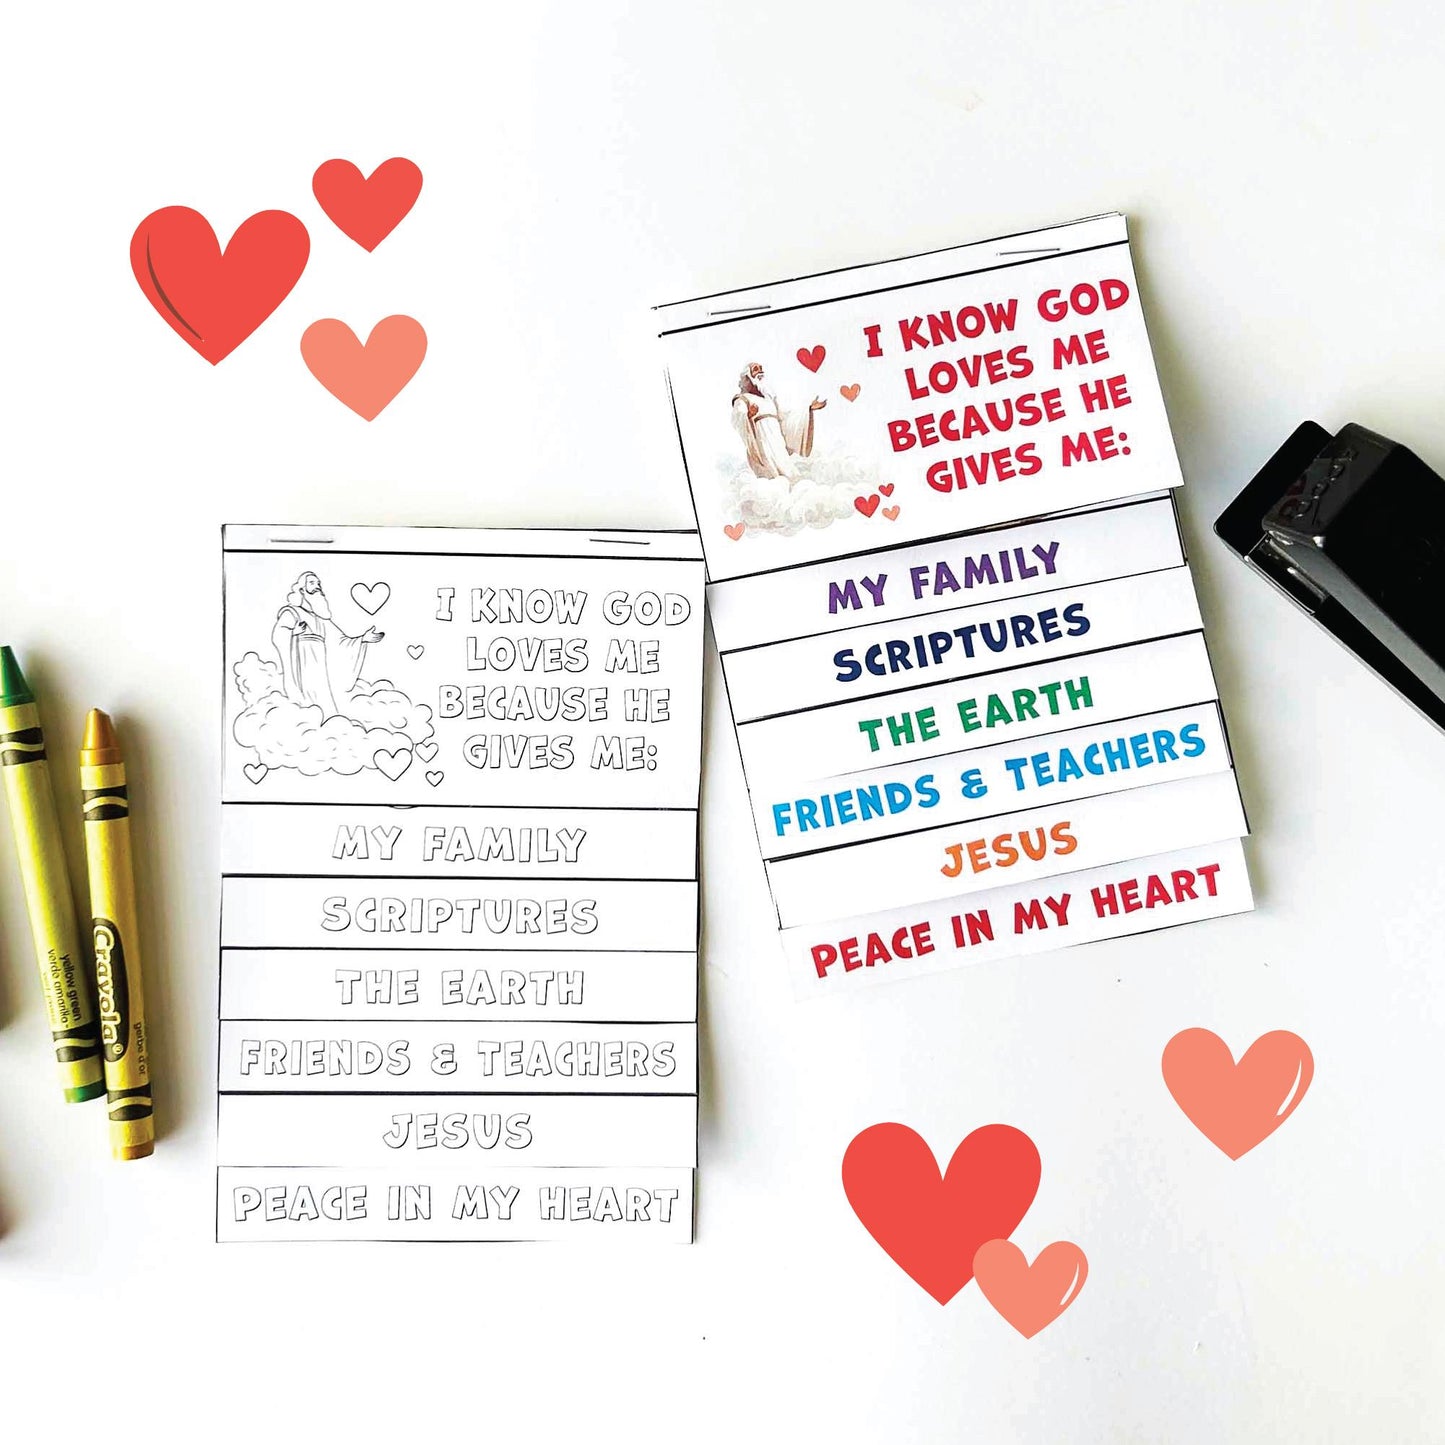 I KNOW GOD
LOVES ME
BECAUSE HE
GIVES ME:
MY FAMILY
SCRIPTURES
THE EARTH
FRIENDS & TEACHERS
JESUS
PEACE IN MY HEART
I KNOW GOD
LOVES ME
BECAUSE HE
GIVES ME:
MY FAMILY
SCRIPTURES
THE EARTH
FRIENDS & TEACHERS
JESUS
PEACE IN MY HEART
yellow green
verde amarillo
Crayola®